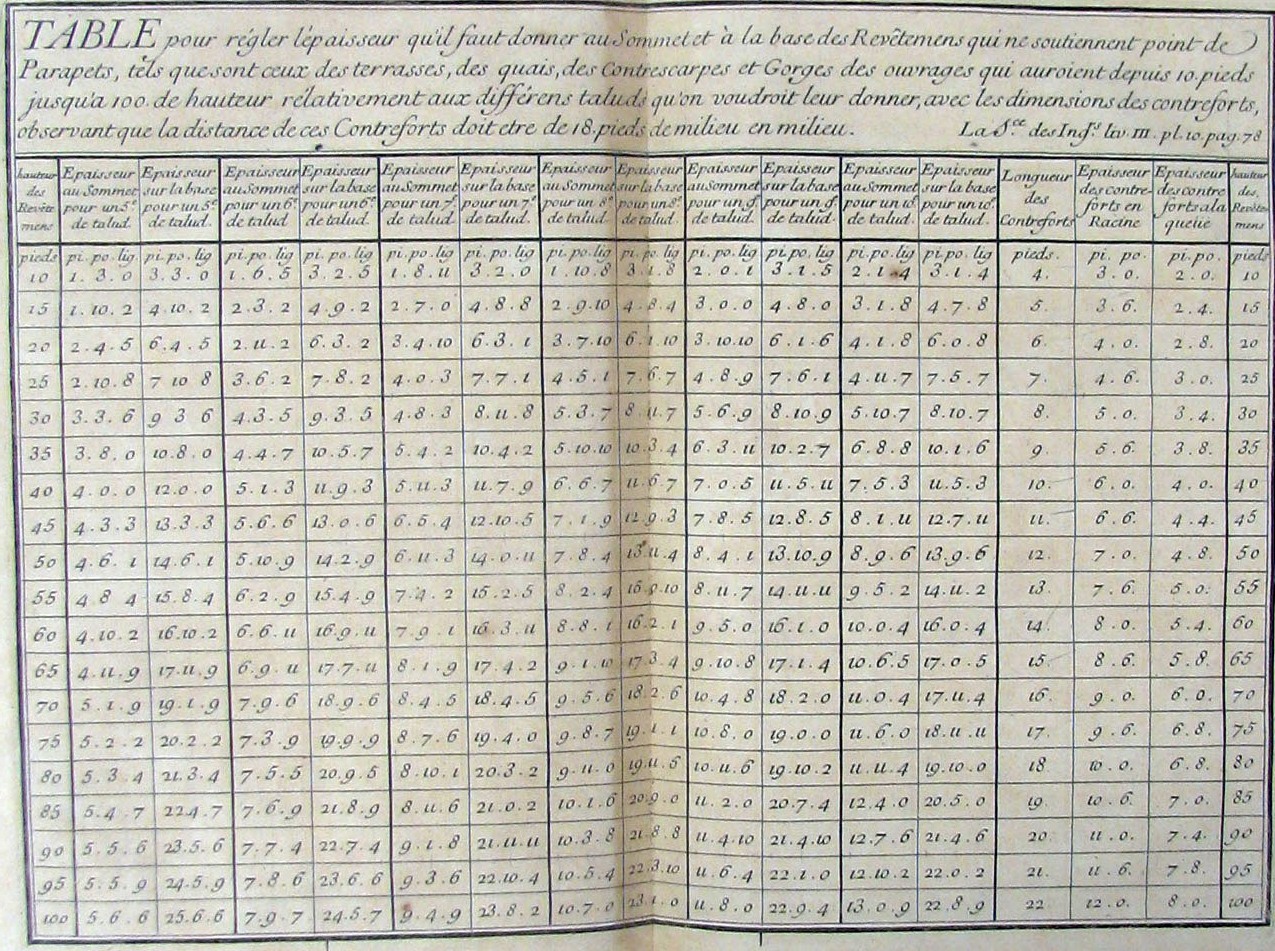 TABLE pour régler l'épaisseur qu'il faut donner au Sommet et à la base des Revêtemens qui ne soutiennent point de
Parapets, tels que sont ceux des terrasses, des quais, des Contrescarpes et Gorges des ouvrages qui auroient depuis 10. pieds
jusqu'a 100. de hauteur rélativement aux différens taluds qu'on voudroit leur donner, avec les dimensions des contreforts,
observant que la distance de ces Contreforts doit etre de 18. pieds de milieu en milieu. La S.ce des Ing.rs liv. III. pl. 10. pag. 78
hauteur des Revêtemens | Epaisseur au Sommet pour un 5e de talud. | Epaisseur sur la base pour un 5e de talud. | Epaisseur au Sommet pour un 6e de talud. | Epaisseur sur la base pour un 6e de talud. | Epaisseur au Sommet pour un 7e de talud. | Epaisseur sur la base pour un 7e de talud. | Epaisseur au Sommet pour un 8e de talud. | Epaisseur sur la base pour un 8e de talud. | Epaisseur au Sommet pour un 9e de talud. | Epaisseur sur la base pour un 9e de talud. | Epaisseur au Sommet pour un 10e de talud. | Epaisseur sur la base pour un 10e de talud. | Longueur des Contreforts | Epaisseur des contreforts en Racine | Epaisseur des contreforts a la queüe | hauteur des Revêtemens
pieds | pi. po. lig | pi. po. lig | pi. po. lig | pi. po. lig | pi. po. lig | pi. po. lig | pi. po. lig | pi. po. lig | pi. po. lig | pi. po. lig | pi. po. lig | pi. po. lig | pieds. | pi. po. | pi. po. | pieds
10 | 1. 3. 0 | 3. 3. 0 | 1. 6. 5 | 3. 2. 5 | 1. 8. 11 | 3. 2. 0 | 1. 10. 8 | 3. 1. 8 | 2. 0. 1 | 3. 1. 5 | 2. 1. 4 | 3. 1. 4 | 4. | 3. 0. | 2. 0. | 10
15 | 1. 10. 2 | 4. 10. 2 | 2. 3. 2 | 4. 9. 2 | 2. 7. 0 | 4. 8. 8 | 2. 9. 10 | 4. 8. 4 | 3. 0. 0 | 4. 8. 0 | 3. 1. 8 | 4. 7. 8 | 5. | 3. 6. | 2. 4. | 15
20 | 2. 4. 5 | 6. 4. 5 | 2. 11. 2 | 6. 3. 2 | 3. 4. 10 | 6. 3. 1 | 3. 7. 10 | 6. 1. 10 | 3. 10. 10 | 6. 1. 6 | 4. 1. 8 | 6. 0. 8 | 6. | 4. 0. | 2. 8. | 20
25 | 2. 10. 8 | 7 10 8 | 3. 6. 2 | 7. 8. 2 | 4. 0. 3 | 7. 7. 1 | 4. 5. 1 | 7. 6. 7 | 4. 8. 9 | 7. 6. 1 | 4. 11. 7 | 7. 5. 7 | 7. | 4. 6. | 3. 0. | 25
30 | 3. 3. 6 | 9 3 6 | 4. 3. 5 | 9. 3. 5 | 4. 8. 3 | 8. 11. 8 | 5. 3. 7 | 8. 11. 7 | 5. 6. 9 | 8. 10. 9 | 5. 10. 7 | 8. 10. 7 | 8. | 5. 0. | 3. 4. | 30
35 | 3. 8. 0 | 10. 8. 0 | 4. 4. 7 | 10. 5. 7 | 5. 4. 2 | 10. 4. 2 | 5. 10. 10 | 10. 3. 4 | 6. 3. 11 | 10. 2. 7 | 6. 8. 8 | 10. 1. 6 | 9. | 5. 6. | 3. 8. | 35
40 | 4. 0. 0 | 12. 0. 0 | 5. 1. 3 | 11. 9. 3 | 5. 11. 3 | 11. 7. 9 | 6. 6. 7 | 11. 6. 7 | 7. 0. 5 | 11. 5. 11 | 7. 5. 3 | 11. 5. 3 | 10. | 6. 0. | 4. 0. | 40
45 | 4. 3. 3 | 13. 3. 3 | 5. 6. 6 | 13. 0. 6 | 6. 5. 4 | 12. 10. 5 | 7. 1. 9 | 12. 9. 3 | 7. 8. 5 | 12. 8. 5 | 8. 1. 11 | 12. 7. 11 | 11. | 6. 6. | 4. 4. | 45
50 | 4. 6. 1 | 14. 6. 1 | 5. 10. 9 | 14. 2. 9 | 6. 11. 3 | 14. 0. 11 | 7. 8. 4 | 13. 11. 4 | 8. 4. 1 | 13. 10. 9 | 8. 9. 6 | 13. 9. 6 | 12. | 7. 0. | 4. 8. | 50
55 | 4 8 4 | 15. 8. 4 | 6. 2. 9 | 15. 4. 9 | 7. 4. 2 | 15. 2. 5 | 8. 2. 4 | 15. 0. 10 | 8. 11. 7 | 14. 11. 11 | 9. 5. 2 | 14. 11. 2 | 13. | 7. 6. | 5. 0. | 55
60 | 4. 10. 2 | 16. 10. 2 | 6. 6. 11 | 16. 9. 11 | 7. 9. 1 | 16. 3. 11 | 8. 8. 1 | 16. 2. 1 | 9. 5. 0 | 16. 1. 0 | 10. 0. 4 | 16. 0. 4 | 14. | 8. 0. | 5. 4. | 60
65 | 4. 11. 9 | 17. 11. 9 | 6. 9. 11 | 17. 7. 11 | 8. 1. 9 | 17. 4. 2 | 9. 1. 10 | 17. 3. 4 | 9. 10. 8 | 17. 1. 4 | 10. 6. 5 | 17. 0. 5 | 15. | 8. 6. | 5. 8. | 65
70 | 5. 1. 9 | 19. 1. 9 | 7. 9. 6 | 18. 9. 6 | 8. 4. 5 | 18. 4. 5 | 9. 5. 6 | 18. 2. 6 | 10. 4. 8 | 18. 2. 0 | 11. 0. 4 | 17. 11. 4 | 16. | 9. 0. | 6. 0. | 70
75 | 5. 2. 2 | 20. 2. 2 | 7. 3. 9 | 19. 9. 9 | 8. 7. 6 | 19. 4. 0 | 9. 8. 7 | 19. 1. 1 | 10. 8. 0 | 19. 0. 0 | 11. 6. 0 | 18. 11. 11 | 17. | 9. 6. | 6. 8. | 75
80 | 5. 3. 4 | 21. 3. 4 | 7. 5. 5 | 20. 9. 5 | 8. 10. 1 | 20. 3. 2 | 9. 11. 0 | 19. 11. 6 | 10. 11. 6 | 19. 10. 2 | 11. 11. 4 | 19. 10. 0 | 18 | 10. 0. | 6. 8. | 80
85 | 5. 4. 7 | 22. 4. 7 | 7. 6. 9 | 21. 8. 9 | 8. 11. 6 | 21. 0. 2 | 10. 1. 6 | 20. 9. 0 | 11. 2. 0 | 20. 7. 4 | 12. 4. 0 | 20. 5. 0 | 19. | 10. 6. | 7. 0. | 85
90 | 5. 5. 6 | 23. 5. 6 | 7. 7. 4 | 22. 7. 4 | 9. 1. 8 | 21. 11. 11 | 10. 3. 8 | 21. 8. 8 | 11. 4. 10 | 21. 4. 10 | 12. 7. 6 | 21. 4. 6 | 20. | 11. 0. | 7. 4. | 90
95 | 5. 5. 9 | 24. 5. 9 | 7. 8. 6 | 23. 6. 6 | 9. 3. 6 | 22. 10. 4 | 10. 5. 4 | 22. 3. 10 | 11. 6. 4 | 22. 1. 0 | 12. 10. 2 | 22. 0. 2 | 21. | 11. 6. | 7. 8. | 95
100 | 5. 6. 6 | 25. 6. 6 | 7. 9. 7 | 24. 5. 7 | 9. 4. 9 | 23. 8. 2 | 10. 7. 0 | 23. 1. 0 | 11. 8. 0 | 22. 9. 4 | 13. 0. 9 | 22. 8. 9 | 22 | 12. 0. | 8. 0. | 100